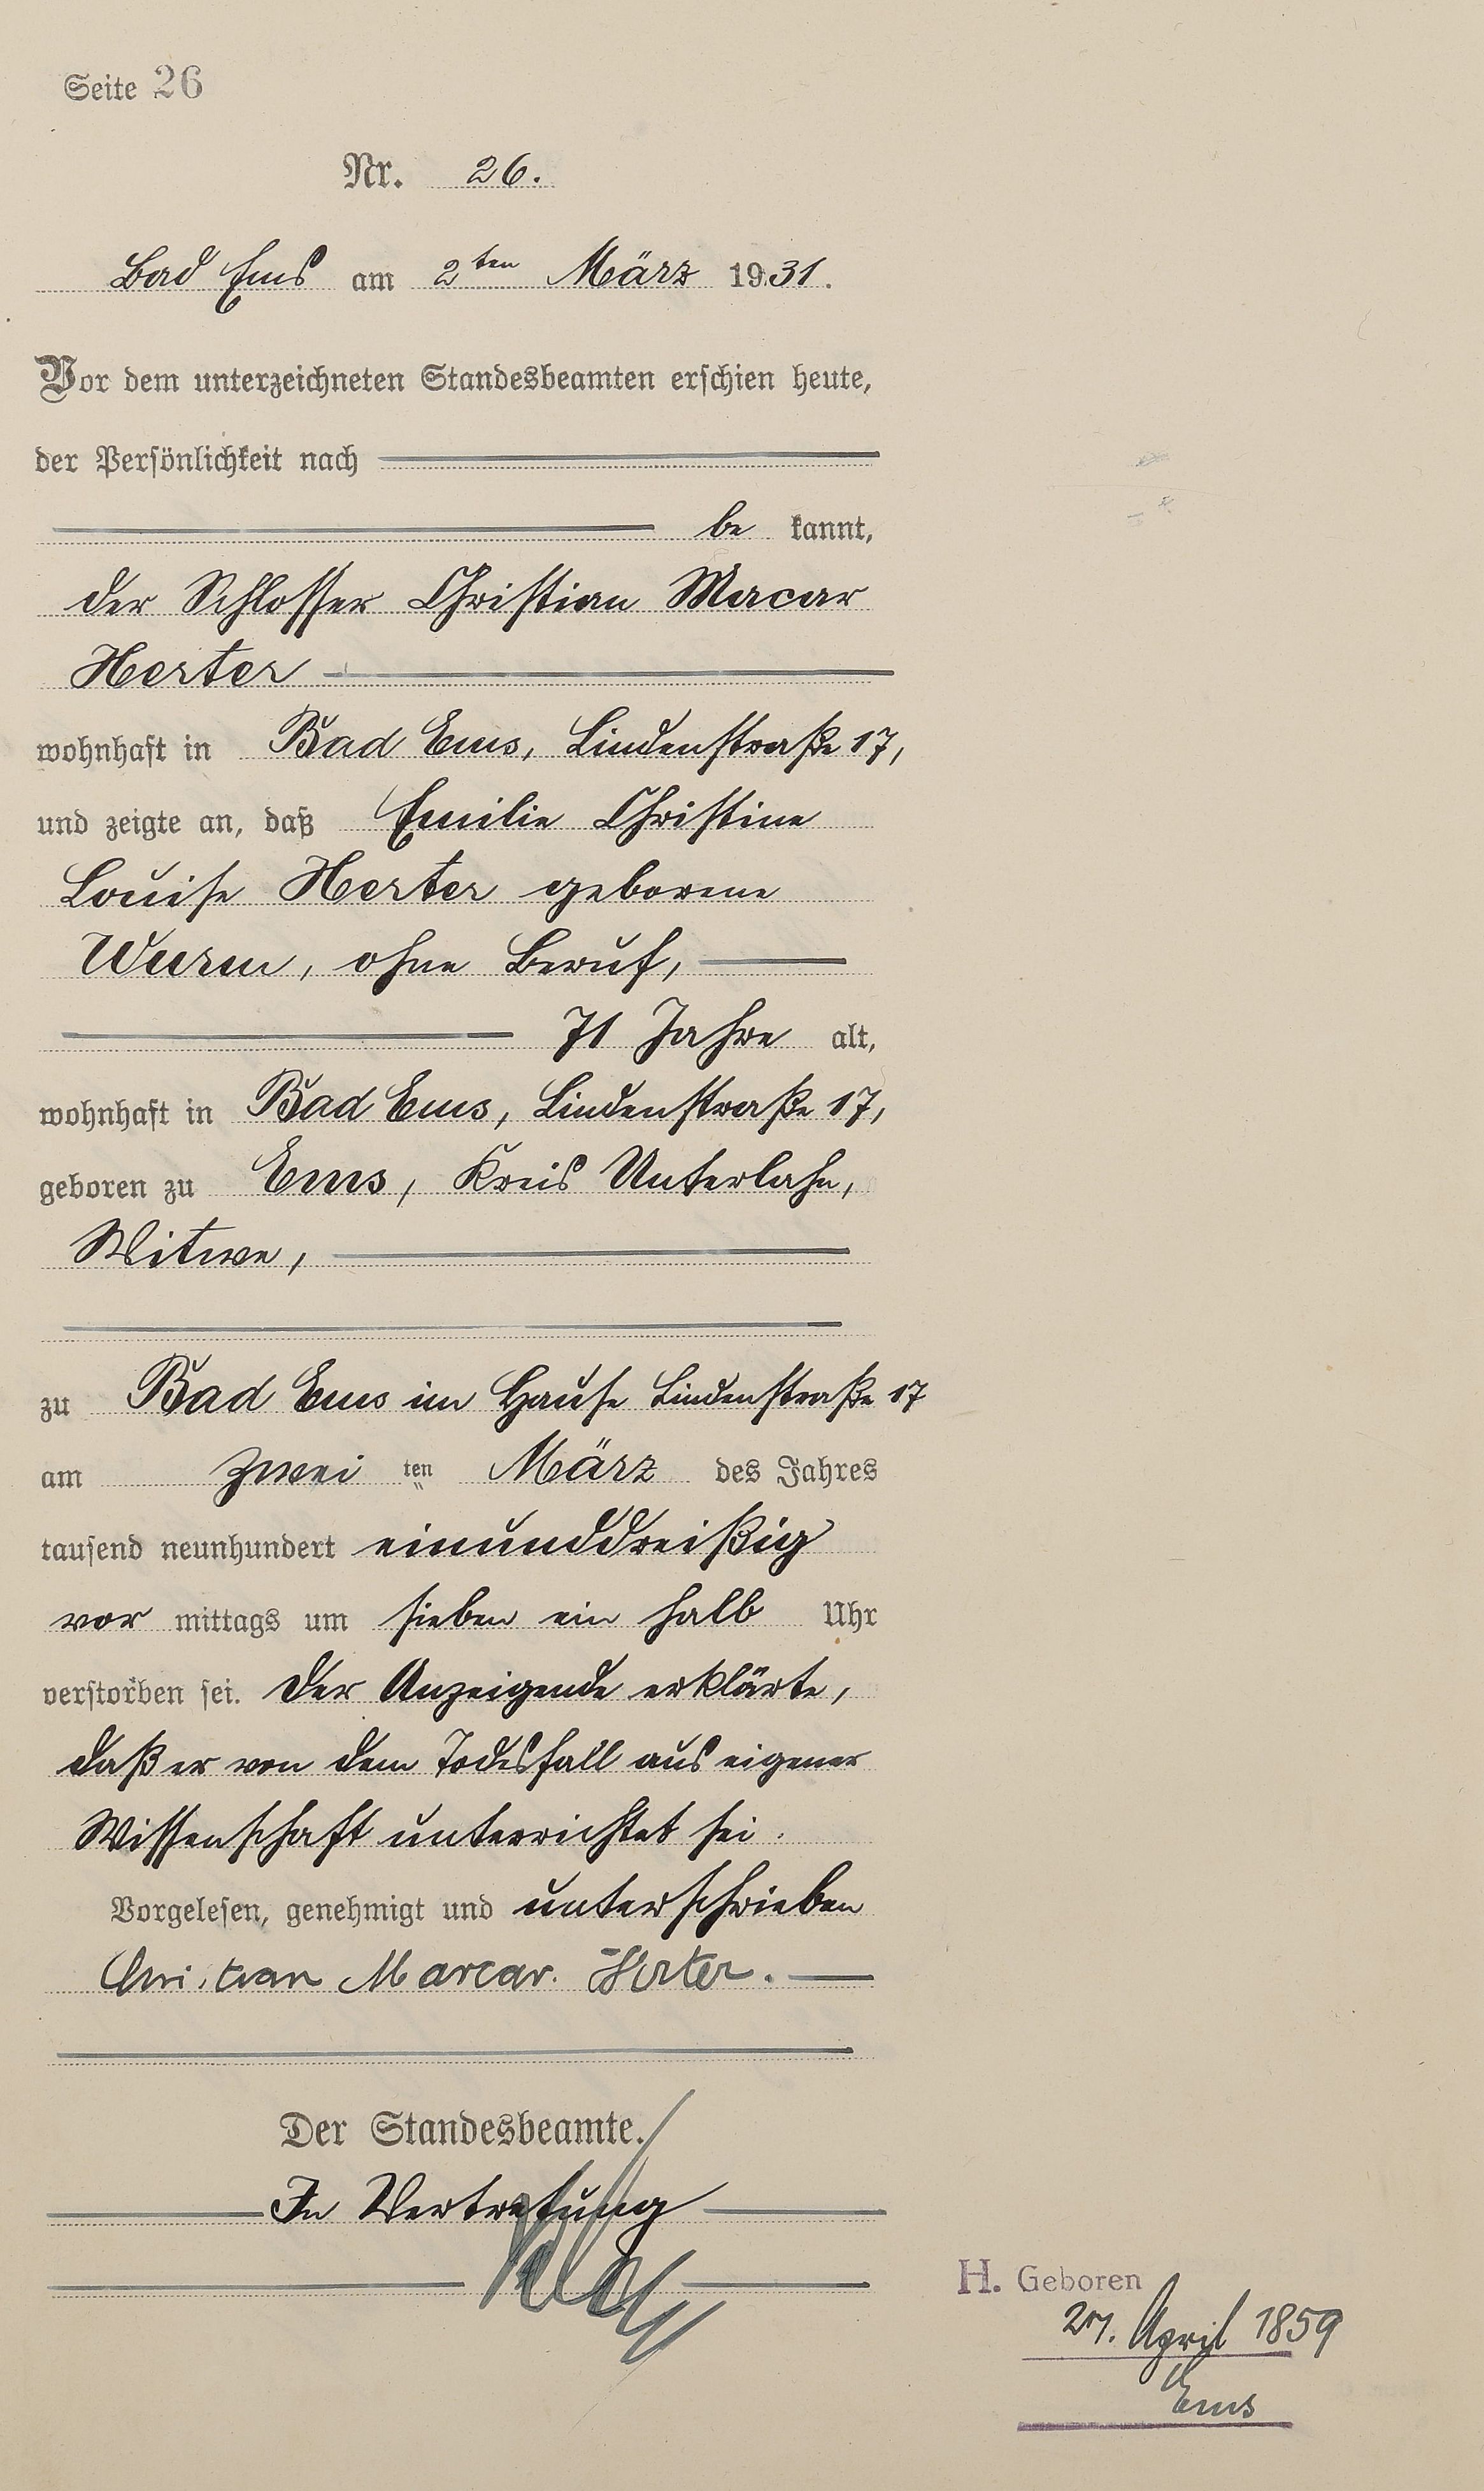 Seite 26
Nr. 26.
Bad Ems am 2ten März 1931.
Vor dem unterzeichneten Standesbeamten erschien heute,
der Persönlichkeit nach
be kannt,
der Schlosser Christian Macar
Herter
wohnhaft in Bad Ems, Lindenstraße 17,
und zeigte an, daß Emilie Christine
Louise Herter geborene
Wurm, ohne Beruf,
71 Jahre alt,
wohnhaft in Bad Ems, Lindenstraße 17,
geboren zu Ems, Kreis Unterlahn,
Witwe,
zu Bad Ems im Hause Lindenstraße 17
am zwei ten März des Jahres
tausend neunhundert einunddreißig
vor mittags um sieben ein halb Uhr
verstorben sei. Der Anzeigende erklärte,
daß er von dem Todesfall aus eigener
Wissenschaft unterrichtet sei.
Vorgelesen, genehmigt und unterschrieben
Christian Marcar. Herter.
Der Standesbeamte.
In Vertretung
H. Geboren
April 1859
Ems